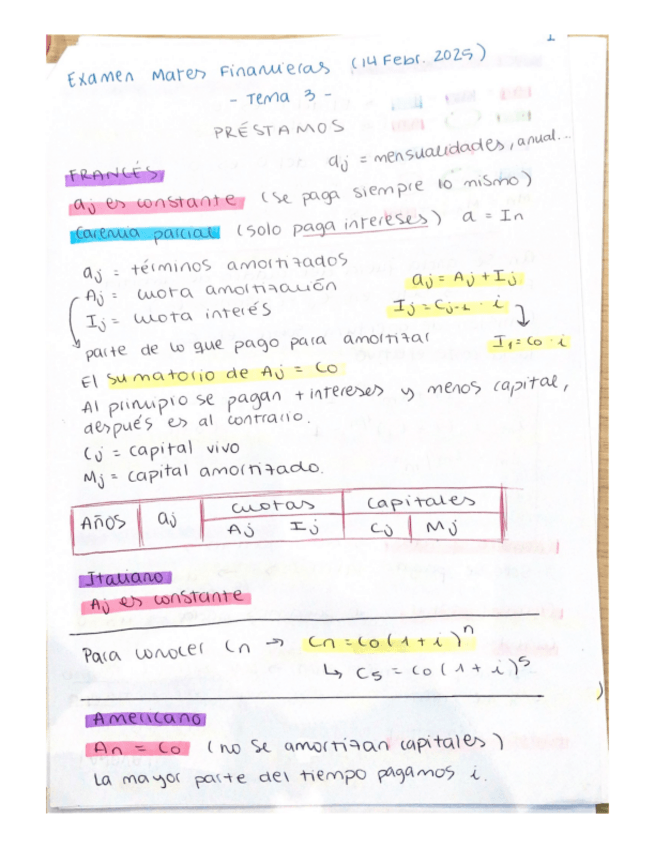 1
Examen Mates Financieras (14 Febr. 2025)
- Tema 3 -
PRÉSTAMOS
aj = mensualidades, anual...
FRANCÉS
aj es constante (se paga siempre lo mismo)
carencia parcial (solo paga intereses) a = In
aj = términos amortizados
Aj = cuota amortización
aj = Aj + Ij
Ij = cuota interés
Ij = Cj-1 · i
parte de lo que pago para amortizar
I1 = Co · i
El sumatorio de Aj = Co
Al principio se pagan + intereses y menos capital,
después es al contrario.
Cj = capital vivo
Mj = capital amortizado.
Años aj cuotas capitales
Aj Ij Cj Mj
Italiano
Aj es constante
Para conocer Cn → Cn = Co (1 + i)^n
↳ C5 = Co (1 + i)^5
Americano
An = Co (no se amortizan capitales)
La mayor parte del tiempo pagamos i.